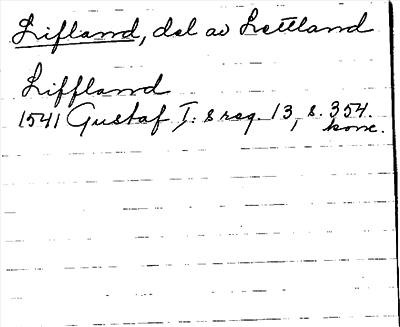 Lifland, del av Lettland
Liffland
1541 Gustaf I: s reg. 13, s. 354.
konc.